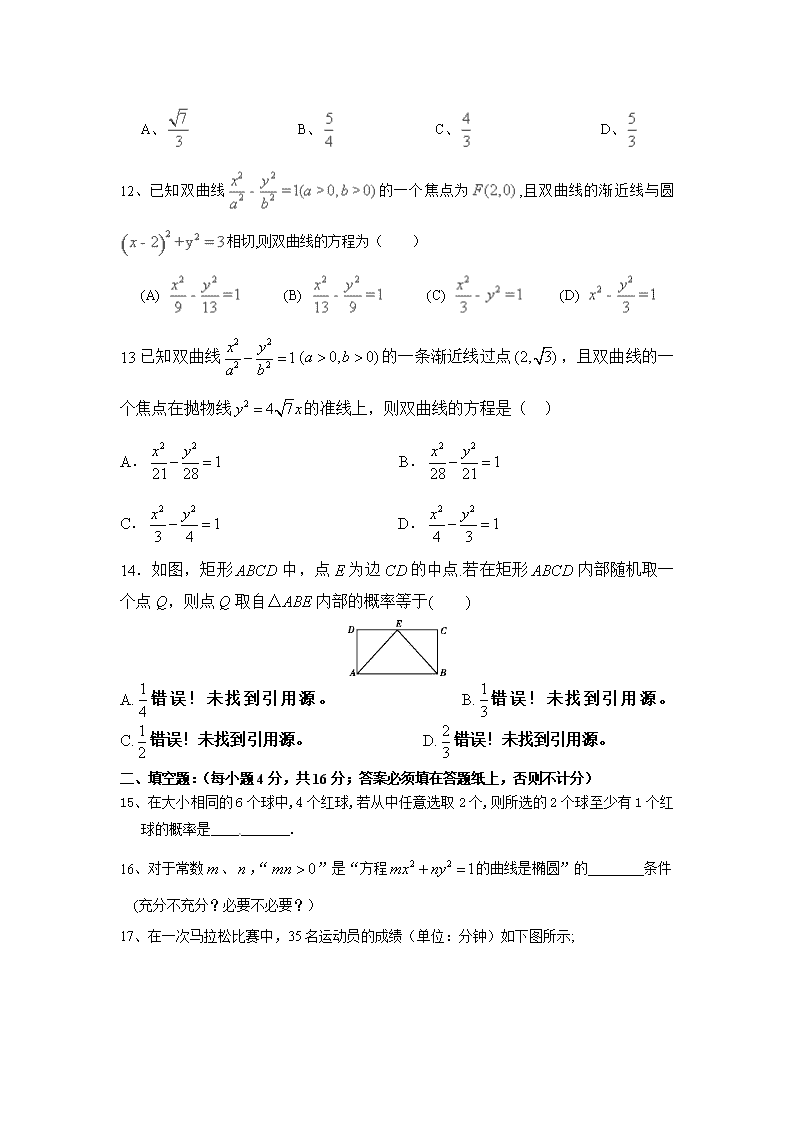 A、√7/3 B、5/4 C、4/3 D、5/3
12、已知双曲线 x²/a² - y²/b² =1(a>0,b>0) 的一个焦点为 F(2,0) ,且双曲线的渐近线与圆
(x-2)²+y²=3 相切,则双曲线的方程为（ ）
(A) x²/9 - y²/13 =1 (B) x²/13 - y²/9 =1 (C) x²/3 - y² =1 (D) x² - y²/3 =1
13 已知双曲线 x²/a² − y²/b² = 1 (a > 0, b > 0) 的一条渐近线过点 (2, √3) ，且双曲线的一
个焦点在抛物线 y² = 4√7 x 的准线上，则双曲线的方程是（ ）
A．x²/21 − y²/28 = 1 B．x²/28 − y²/21 = 1
C．x²/3 − y²/4 = 1 D．x²/4 − y²/3 = 1
14．如图，矩形 ABCD 中，点 E 为边 CD 的中点.若在矩形 ABCD 内部随机取一
个点 Q，则点 Q 取自△ABE 内部的概率等于( )
D E C
A B
A. 1/4 错误！未找到引用源。 B. 1/3 错误！未找到引用源。
C. 1/2 错误！未找到引用源。 D. 2/3 错误！未找到引用源。
二、填空题:（每小题 4 分，共 16 分；答案必须填在答题纸上，否则不计分）
15、在大小相同的 6 个球中, 4 个红球, 若从中任意选取 2 个, 则所选的 2 个球至少有 1 个红
球的概率是___________．
16、对于常数 m 、 n ,“ mn > 0 ”是“方程 mx² + ny² = 1 的曲线是椭圆”的________条件
(充分不充分？必要不必要？)
17、在一次马拉松比赛中，35 名运动员的成绩（单位：分钟）如下图所示;